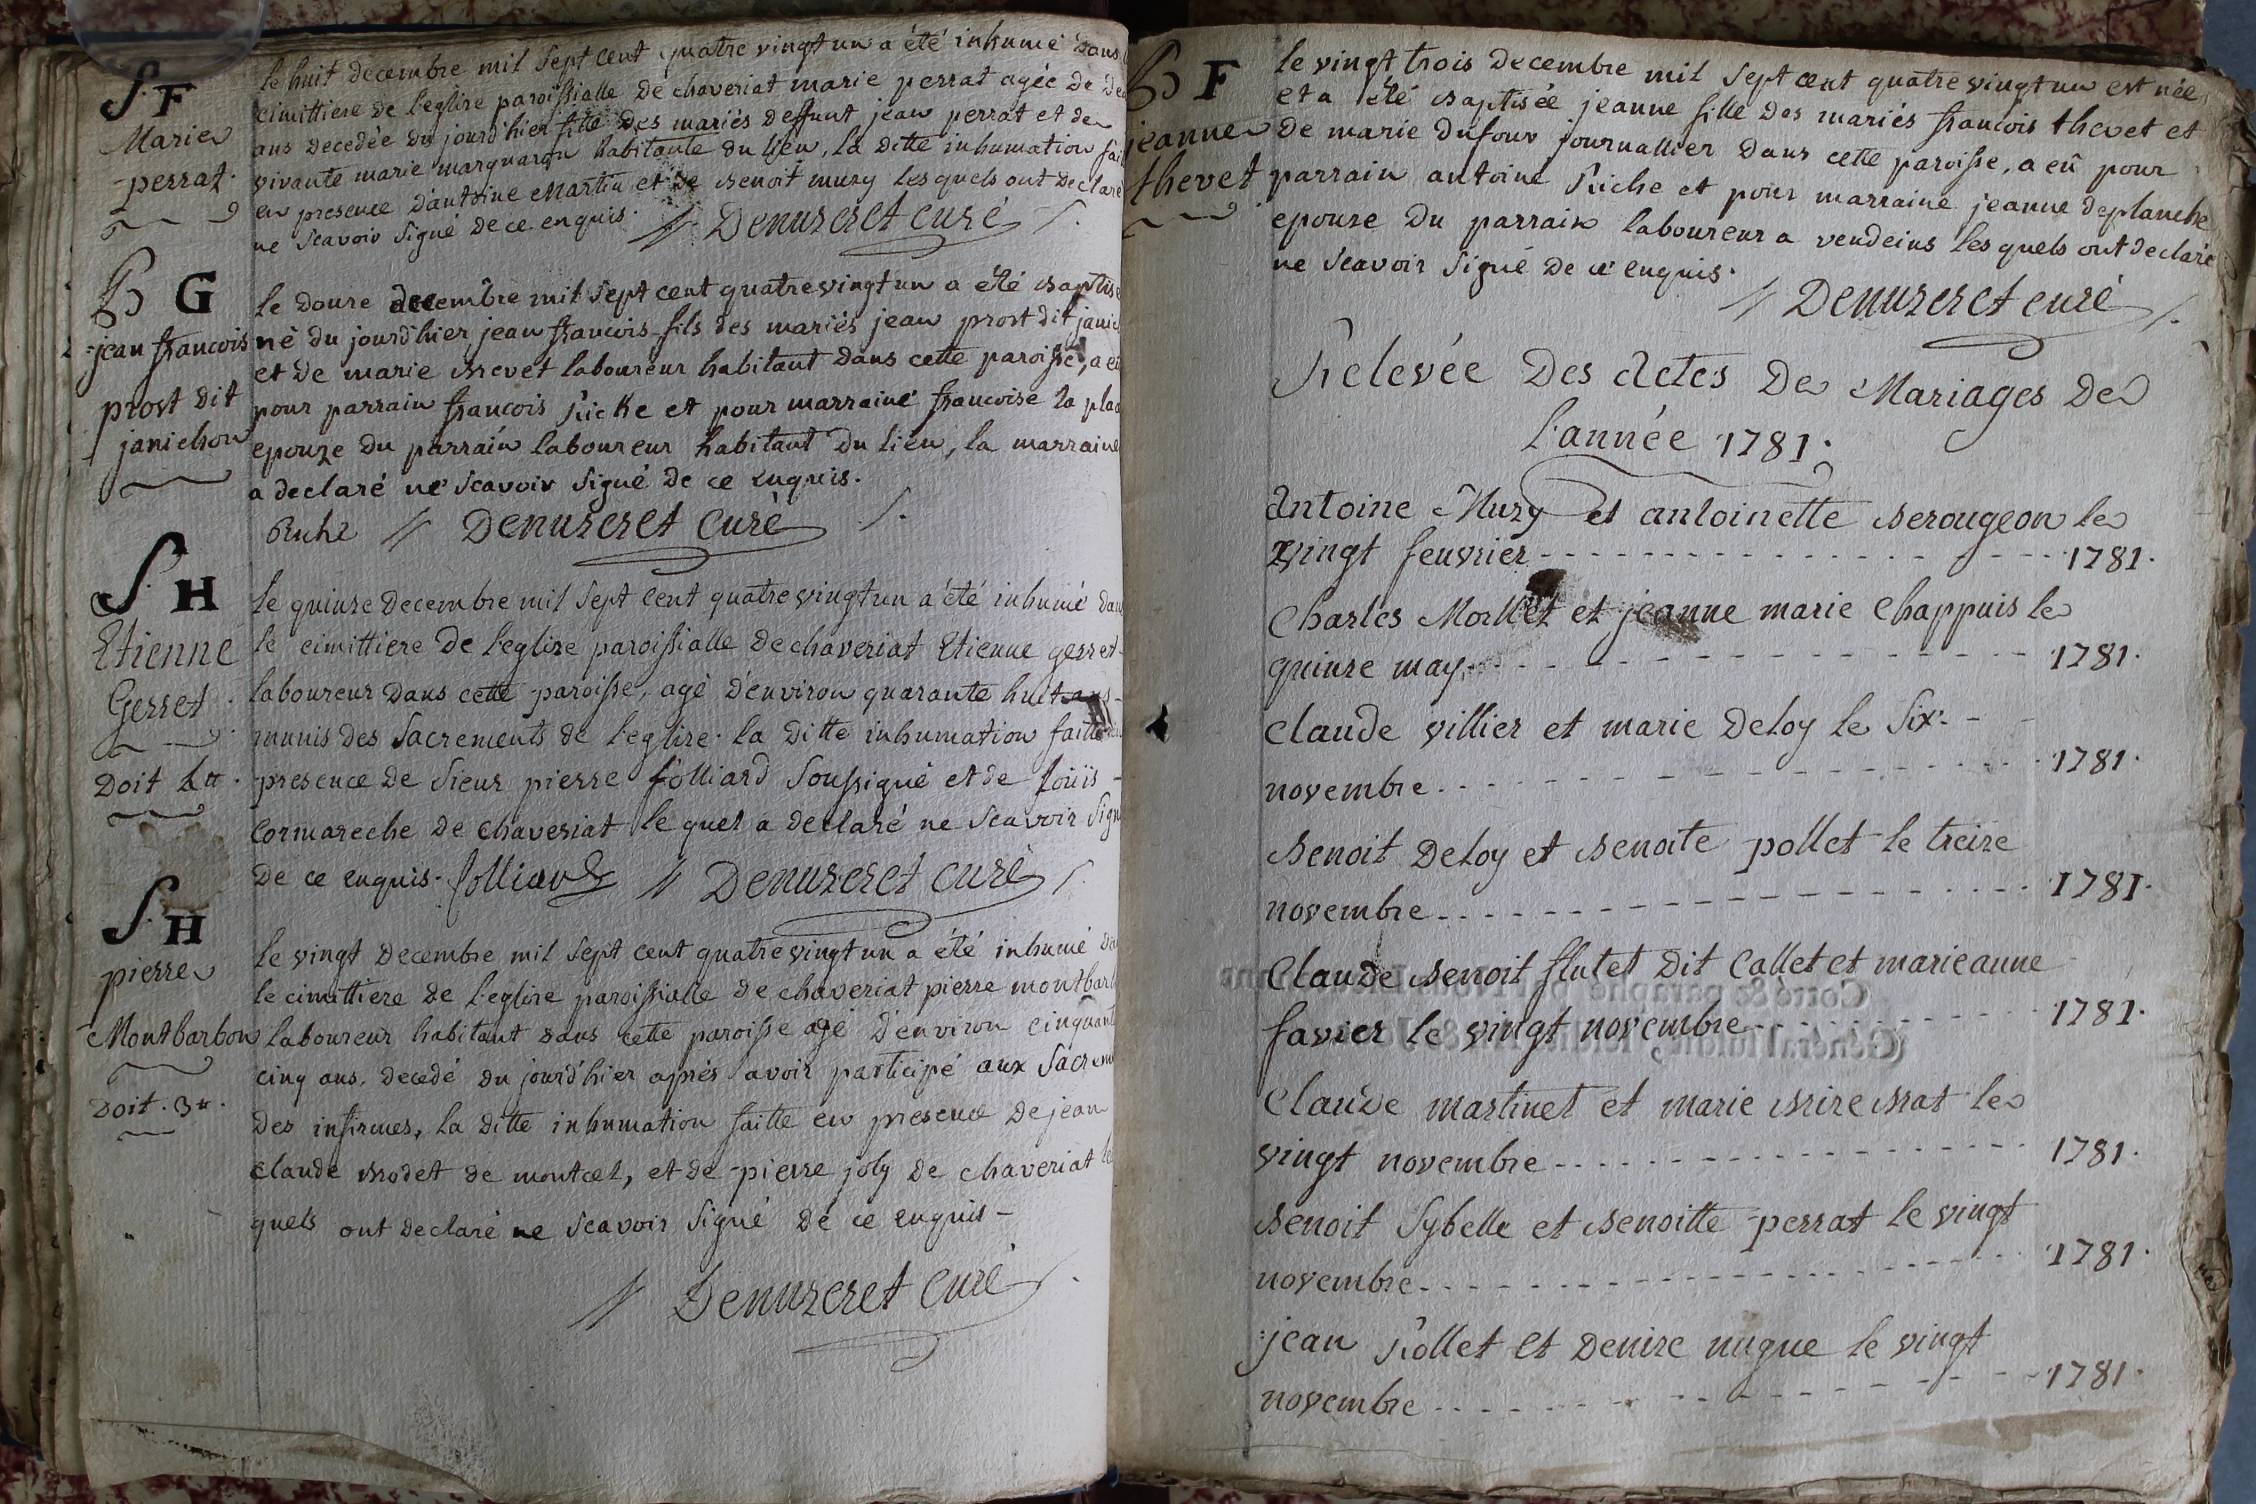 S. F
Marie
perrat.
le huit decembre mil sept cent quatre vingt un a été inhumé dans
cimittiere de l'eglise paroissialle de chaveriat marie perrat agée de
ans decedée du jourd'hier fille des mariés deffunt jean perrat et de
vivante marie marguaron habitante du lieu, la ditte inhumation fai
en presence d'antoine Martin et de Benoit muzy les quels ont declaré
ne scavoir signé de ce enquis. // Denuzeret curé /.
B G
jean francois
prost dit
janichon
le douze decembre mil sept cent quatre vingt un a été baptisé
né du jourd'hier jean francois fils des mariés jean prost dit janic
et de marie Brevet laboureur habitant dans cette paroisse, a eu
pour parrain francois Riche et pour marraine francoise la pla
epouze du parrain laboureur habitant du lieu, la marraine
a declaré ne scavoir signé de ce enquis.
Riche // Denuzeret curé /.
S. H
Etienne
Gerret.
Doit 4 tt.
le quinze decembre mil sept cent quatre vingt un a été inhumé dans
le cimittiere de l'eglize paroissialle de chaveriat Etienne gerret
laboureur dans cette paroisse, agé d'environ quarante huit ans
munis des sacrements de l'eglise. la ditte inhumation faitte en
presence de sieur pierre folliard soussigné et de loüis
cormareche de chaveriat le quel a declaré ne scavoir signé
de ce enquis. folliard // Denuzeret curé /.
S. H
pierre
Montbarbon
Doit. 3 tt.
le vingt decembre mil sept cent quatre vingt un a été inhumé da
le cimittiere de l'eglise paroissialle de chaveriat pierre montbarb
laboureur habitant dans cette paroisse agé d'environ cinquant
cinq ans. decedé du jourd'hier aprés avoir participé aux sacrem
des infirmes, la ditte inhumation faitte en presence de jean
claude Brodet de montcet, et de pierre joly de chaveriat le
quels ont declaré ne scavoir signé de ce enquis -
// Denuzeret curé /.
B F
jeanne
thevet
le vingt trois decembre mil sept cent quatre vingt un est née
et a été Baptisée jeanne fille des mariés francois thevet et
de marie dufour journallier dans cette paroisse, a eû pour
parrain antoine Riche et pour marraine jeanne deplanche
epouse du parrain laboureur a vendeins les quels ont declaré
ne scavoir signé de ce enquis.
// Denuzeret curé /.
Relevée Des Actes De Mariages De
L'année 1781.
Antoine Muzy et antoinette Berougeon le
vingt feuvrier - - - 1781.
Charles Morllet et jeanne marie Chappuis le
quinze may - - - 1781.
Claude villier et marie Deloy le six -
novembre - - - 1781.
Benoit Deloy et Benoite pollet le treize
novembre - - - 1781.
Claude Benoit flutet dit Callet et marieanne
favier le vingt novembre - - - 1781.
Claude martinet et marie Brirebrat le
vingt novembre - - - 1781.
Benoit Sybelle et Benoitte perrat le vingt
novembre - - - 1781.
jean Rollet et Denize nugue le vingt
novembre - - - 1781.